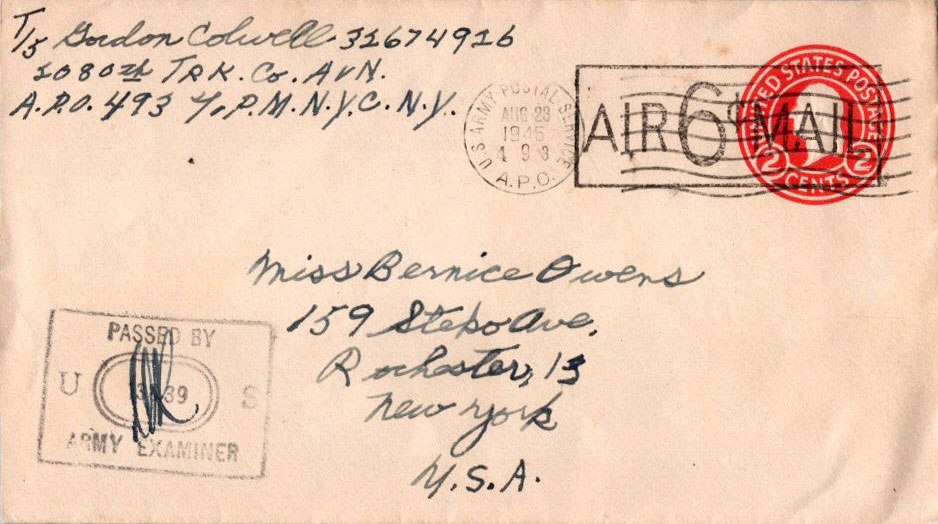 T/5 Gordon Colwell 31674916
1080th Trk. Co. AVN.
A.P.O. 493 %P.M.N.Y.C. N.Y.
U.S. ARMY POSTAL SERVICE
AUG 23
1945
A.P.O.
AIR 6¢ MAIL
UNITED STATES POSTAGE
2 CENTS 2
Miss Bernice Owens
159 Ave.
Rochester, 13
New York
U.S.A.
PASSED BY
U S
ARMY EXAMINER